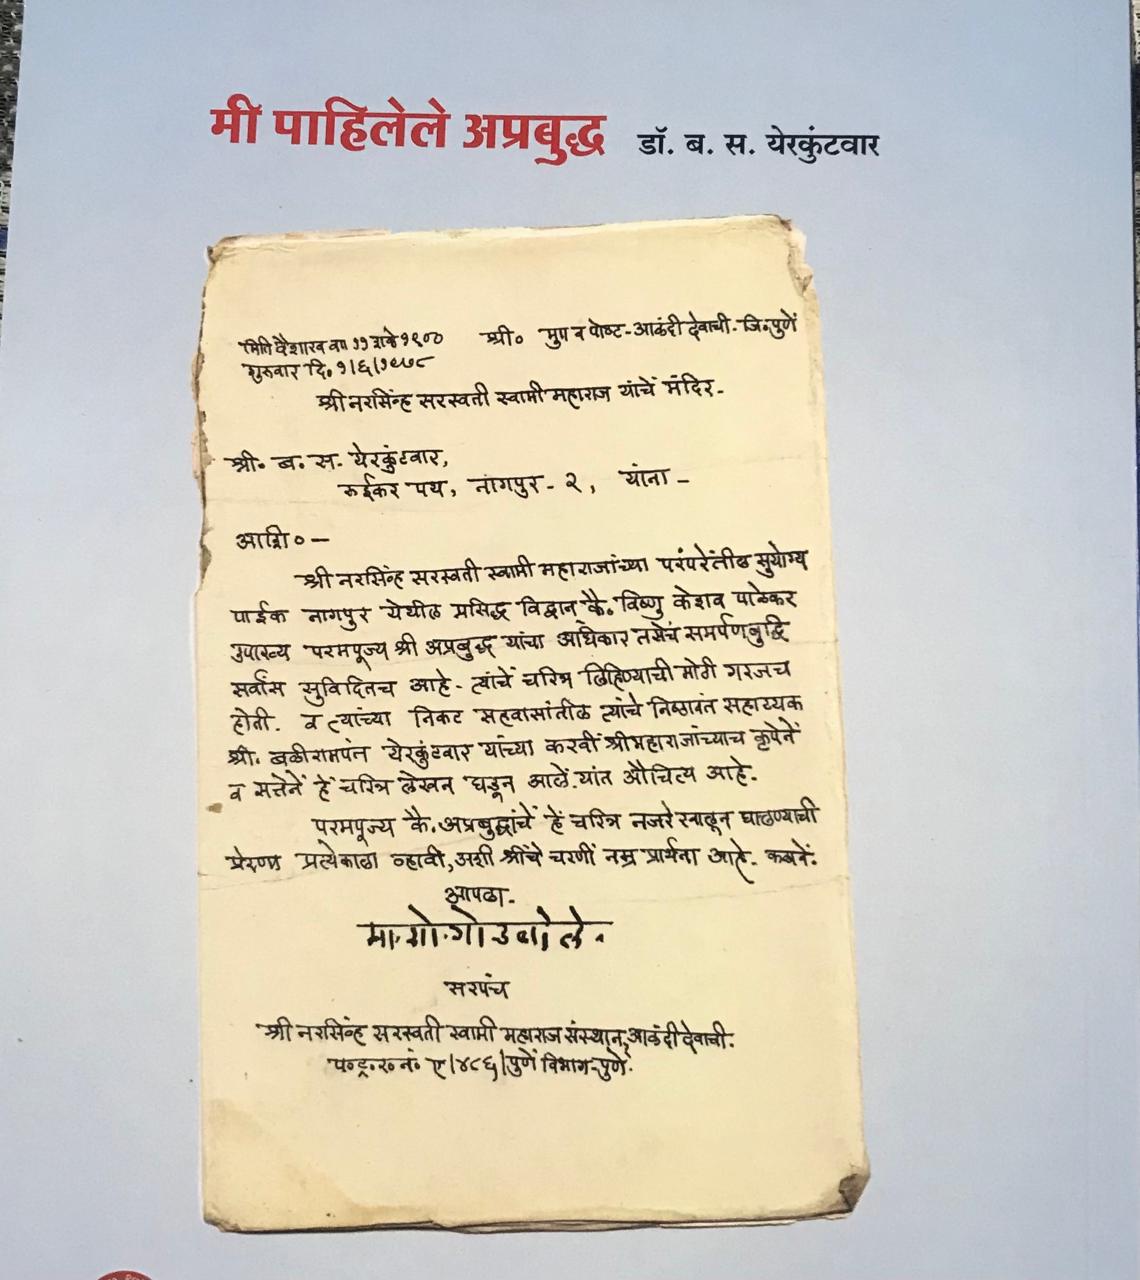 मी पाहिलेले अप्रबुद्ध डॉ. ब. स. येरकुंटवार
मिति वैशाख व॥ ११ शके १९०० श्री० मुप व पोष्ट-आळंदी देवाची-जि.पुणें
शुक्रवार दि.१/६/१९७८
श्री नरसिंव्ह सरस्वती स्वामी महाराज यांचें मंदिर-
श्री. ब. स. येरकुंटवार,
रुईकर पथ, नागपुर - २, यांना -
आशि० -
श्री नरसिंव्ह सरस्वती स्वामी महाराजांच्या परंपरेंतील सुयोग्य
पाईक नागपुर येथील प्रसिद्ध विद्वान् कै. विष्णु केशव पाळेकर
उपाख्य परमपूज्य श्री अप्रबुद्ध यांचा अधिकार तसेंच समर्पणबुद्धि
सर्वांस सुविदितच आहे - त्यांचें चरित्र लिहिण्याची मोठी गरजच
होती. व त्यांच्या निकट सहवासांतील त्यांचे निष्ठावंत सहाय्यक
श्री. बळीरामपंत येरकुंटवार यांच्या करवीं श्रीमहाराजांच्याच कृपेनें
व सत्तेनें हें चरित्र लेखन घडून आलें. यांत औचित्य आहे.
परमपूज्य कै. अप्रबुद्धांचें हें चरित्र नजरे खालून घालण्याची
प्रेरणा प्रत्येकाला व्हावी, अशी श्रींचे चरणीं नम्र प्रार्थना आहे. कळावें.
आपला.
मा.गो.गोडबोले.
सरपंच
श्री नरसिंव्ह सरस्वती स्वामी महाराज संस्थान, आळंदी देवाची.
प.ट्र.र.नं. ए/४८६/पुणें विभाग-पुणे.